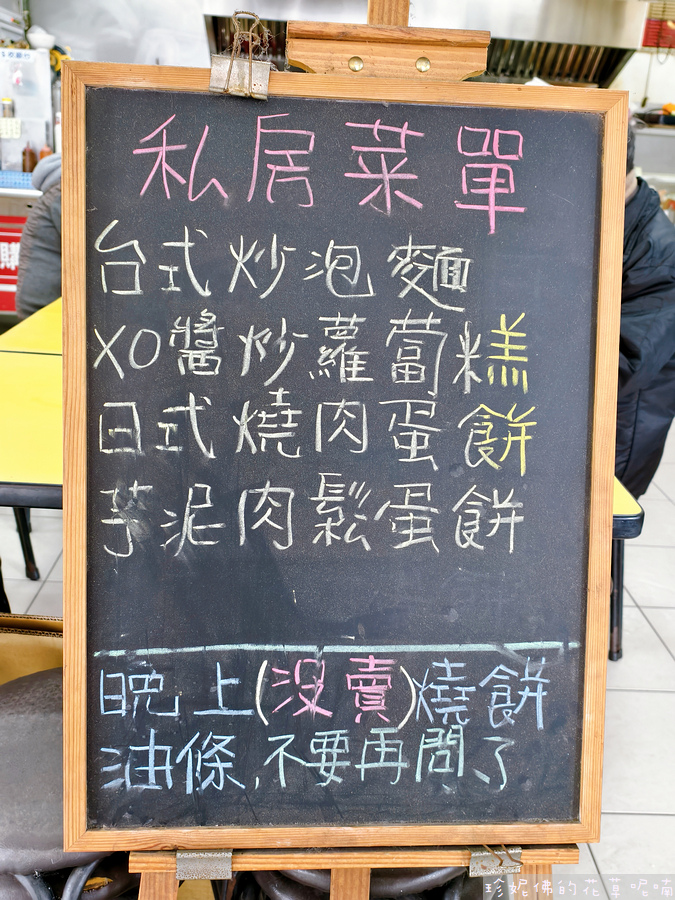 私房菜單
台式炒泡麵
XO醬炒蘿蔔糕
日式燒肉蛋餅
芋泥肉鬆蛋餅
晚上(没賣)燒餅
油條,不要再問了
購
珍妮佛的花草呢喃